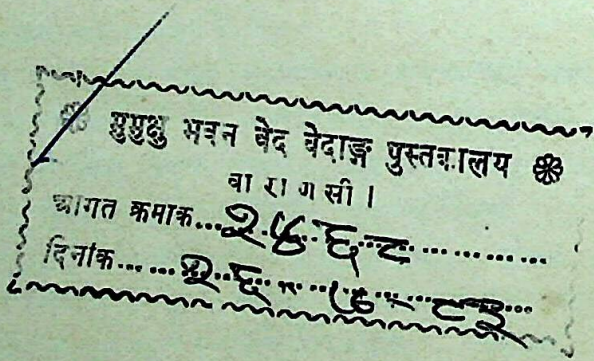 ❀ मुमुक्षु भवन वेद वेदाङ्ग पुस्तकालय ❀
वा रा ण सी ।
आगत क्रमाक...२५६८............
दिनांक......२६